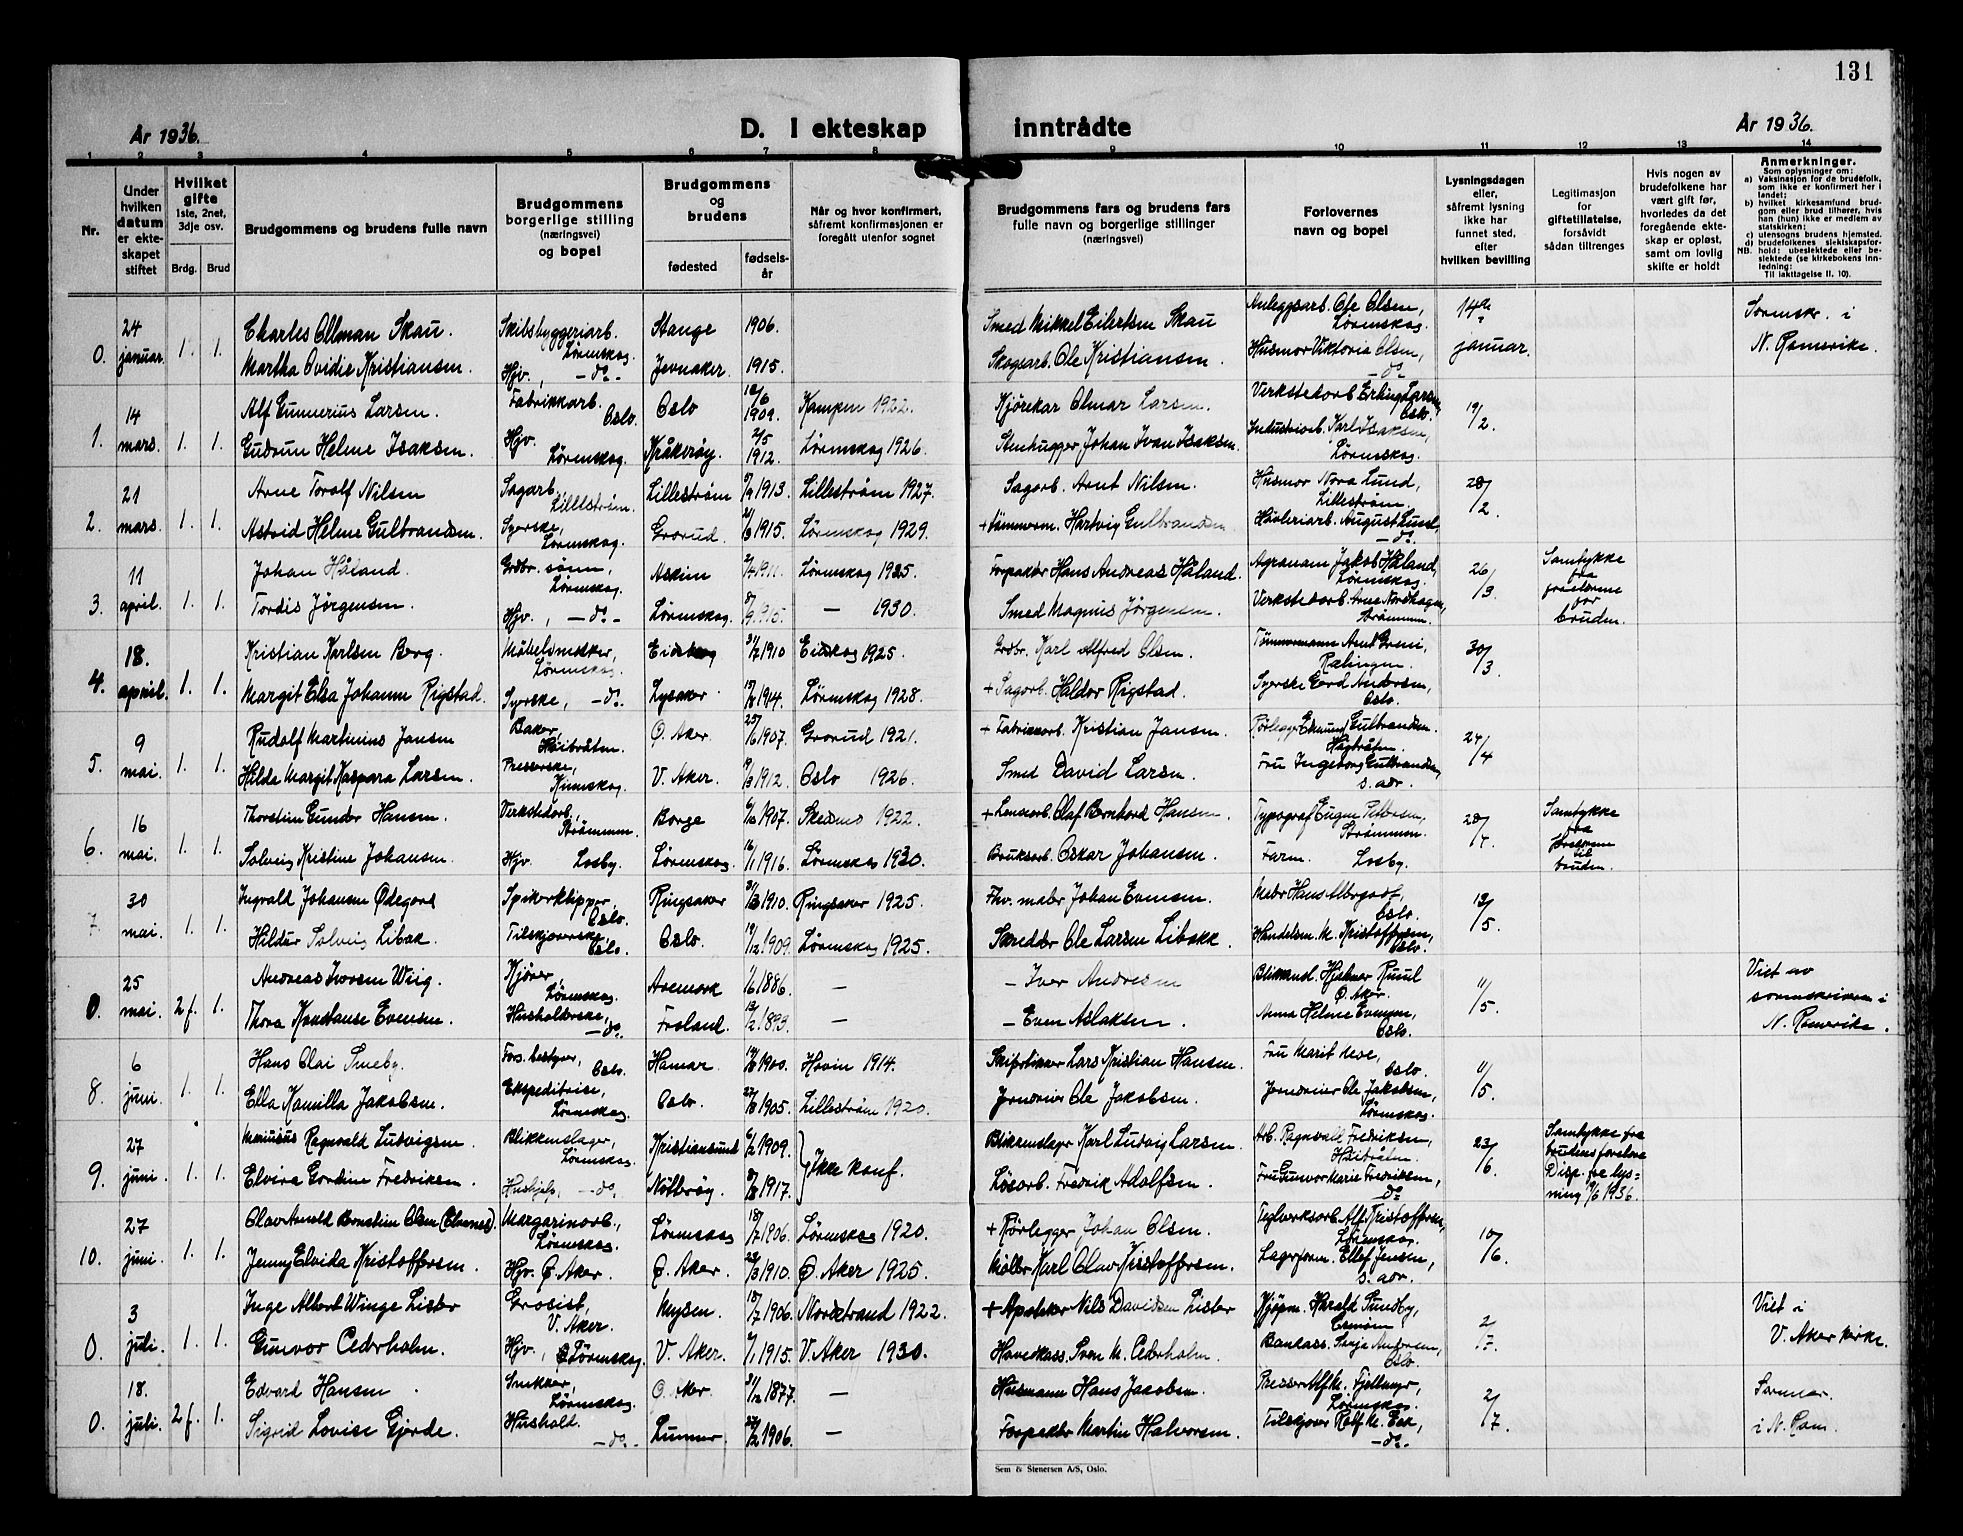 131
År 1936.
D. I ekteskap inntrådte
År 1936.
1 2 3 4 5 6 7 8 9 10 11 12 13 14
Nr.
Under hvilken datum er ekteskapet stiftet
Hvilket gifte 1ste, 2net, 3dje osv.
Brdg. Brud
Brudgommens og brudens fulle navn
Brudgommens borgerlige stilling (næringsvei) og bopel
Brudgommens og brudens
fødested
fødselsår
Når og hvor konfirmert, såfremt konfirmasjonen er foregått utenfor sognet
Brudgommens fars og brudens fars fulle navn og borgerlige stillinger (næringsvei)
Forlovernes navn og bopel
Lysningsdagen eller, såfremt lysning ikke har funnet sted, efter hvilken bevilling
Legitimasjon for giftetillatelse, forsåvidt sådan tiltrenges
Hvis nogen av brudefolkene har vært gift før, hvorledes da det foregående ekteskap er opløst, samt om lovlig skifte er holdt
Anmerkninger.
Som oplysninger om:
a) Vaksinasjon for de brudefolk, som ikke er konfirmert her i landet;
b) hvilket kirkesamfund brudgom eller brud tilhører, hvis han (hun) ikke er medlem av statskirken;
c) utensogns brudens hjemsted.
d) brudefolkenes slektskapsforhold: ubeslektede eller beslektede (se kirkebokens innledning:
NB. Til iakttagelse II. 10).
0. 24 januar. 1. 1. Charles Ollman Skau. Skibsbyggeriarb. Lørenskog. Stange 1906. Smed Mikkel Eilertsen Skau Anleggsarb. Ole Olsen, Lørenskog. januar. Sorenskr. i
Martha Ovidie Kristiansen. Hjv., -do- Jevnaker. 1915. Skogsarb. Ole Kristiansen. Husmor Viktoria Olsen, -do- N. Romerike.
1. 14 mars. 1. 1. Alf Gunnerius Larsen. Fabrikkarb. Oslo. Oslo 12/6 1909. Kampen 1922. Kjørekar Olmar Larsen. Verkstedarb. Erling Larsen, Oslo. 19/2.
Gudrun Helene Isaksen. Hjv. Lørenskog. Kråkerøy. 2/5 1912. Lørenskog 1926. Stenhugger Johan Ivan Isaksen. Industriarb. Karl Isaksen, Lørenskog.
2. 21 mars. 1. 1. Arne Torolf Nilsen Sagarb. Lillestrøm. Lillestrøm 1913. Lillestrøm 1927. Sagarb. Arnt Nilsen. Husmor Nora Lund, Lillestrøm 28/2
Astrid Helene Gulbrandsen. Syerske, Lørenskog. Grorud. 1915. Lørenskog 1929. + tømmerm. Hartvig Gulbrandsen Høvleriarb. August Lund, -do-
3. 11 april. 1. 1. Johan Håland. Grdbr. sønn, Lørenskog. Askim 1911. Lørenskog 1925. Forpakter Hans Andreas Håland. Agronom Jakob Håland, Lørenskog. 26/3. Samtykke fra foreldrene for bruden.
Tordis Jørgensen. Hjv., -do- Lørenskog. 1915. — 1930. Smed Magnus Jørgensen. Verkstedarb. Arne Nordhagen, Strømmen.
4. 18. april. 1. 1. Kristian Karlsen Berg. Møbelsnekker, Lørenskog. Eidskog 1910 Eidskog 1925. Grdbr. Karl Alfred Olsen. Tømmermann Arnt Greni, Rælingen. 30/3
Margit Elsa Johanne Rigstad. Syerske, -do- Lysaker. 1914. Lørenskog 1928. + Sagarb. Haldor Rigstad. Syerske Gerd Andersen, Oslo.
5. 9 mai. 1. 1. Rudolf Martinius Jansen Baker, Ø. Aker. 25/6 1907. Grorud 1921. + Fabrikkarb. Kristian Jansen. Rørlegger Edmund Gulbrandsen. 24/4
Hilda Margit Kaspara Larsen. Presserske, V. Aker. 1912. Oslo 1926. Smed David Larsen. Fru Ingeborg Gulbrandsen, s. adr.
6. 16 mai. 1. 1. Thorstein Gunder Hansen. Verkstedarb., Strømmen. Borge 1907. Skedsmo 1922. Olaf Bernhard Hansen Typograf Eugen Pettersen, Strømmen. 28/4. Samtykke fra foreldrene til bruden.
Solveig Kristine Johansen. Hjv. Losby. Lørenskog. 16/1 1916. Lørenskog 1930. Bruksarb. Oskar Johansen. Farm. Losby.
7 30 mai. 1. 1. Ingvald Johansen Ødegård Spikerklipper, Oslo. Ringsaker 31/3 1910. Ringsaker 1925. Fhv. møbr. Johan Evensen. Hans Oslo. 13/5.
Hildur Solveig Libak. Tilskjærerske Oslo. Oslo. 19/12 1909. Lørenskog 1925. Skredder Ole Larsen Libakk. Handelsm. M. Kristoffersen, Oslo.
0. 25 mai. 2 f. 1. Andreas Iversen Wiig. Kjører, Lørenskog. Aremark 1886. — - Iver Andresen Blikkensl. Hjalmar Ruud Ø. Aker. 11/5. Viet av
Thora Konstanse Evensen. Husholderske, -do- Froland. 1893. — - Even Aslaksen. Anna Helene Evensen, Oslo. sorenskriveren i N. Romerike.
8. 6 juni. 1. 1. Hans Olai Smeby. Fors. bestyrer, Oslo. Hamar 1900. Hovin 1914. Lars Kristian Hansen. Fru Marit Moe, Oslo. 11/5.
Ella Kamilla Jakobsen. Ekspeditrise, Lørenskog. Oslo. 1905. Lillestrøm 1920. Jerndreier Ole Jakobsen. Jerndreier Ole Jakobsen, Lørenskog.
9. 27 juni. 1. 1. Marusus Ragnvald Ludvigsen. Blikkenslager, Lørenskog. Kristiansund 1909. } Ikke konf. Blikkenslager Karl Ludvig Larsen. Arb. Ragnvall Fredriksen, 23/6. Samtykke fra brudens foreldre
Elvira Gordine Fredriksen. Hushjelp, -do- Nøtterøy. 1917. Løsarb. Fredrik Adolfsen. Fru Gunvor Marie Fredriksen, -do- Disp. fra lysning 19/6 1936.
10. 27 juni. 1. 1. Olav Arnold Bernstein Olsen (Elvenes). Margarinarb., Lørenskog. Lørenskog 18/7 1906. Lørenskog 1920. + Rørlegger Johan Olsen. Teglverksarb. Alf Kristoffersen, Lørenskog. 10/6.
Jenny Elvida Kristoffersen. Hjv. Ø. Aker. Ø. Aker. 1910. Ø. Aker 1925. Møller Karl Olav Kristoffersen. Lagerform. Ellef Jensen, s. adr.
0. 3 juli. 1. 1. Inge Albert Winge Lister Grosist, V. Aker. Mysen. 18/7 1906. Nordstrand 1922. + Apoteker Nils Davidsen Lister Kjøpm. Harald Sundby, 2/7. Viet i
Gunvor Cederholm. Hjv., Lørenskog. V. Aker. 1915. V. Aker 1930. Hovedkass. Sven M. Cederholm. Bankass. Andersen, Oslo. V. Aker kirke.
0. 18. juli. 2 f. 1. Edvard Hansen. Snekker, Lørenskog. Ø. Aker. 31/12 1877. — Husmann Hans Jacobsen. Presser Alf M. Fjellmyr, Lørenskog. 2/7. Sorenskr.
Sigrid Lovise Gjerde. Hushold. -do- Lunner. 1906. — Forpakter Martin Halvorsen. Tilskjærer Rolf M. Eek, -do- i N. Rom.
Sem & Stenersen A/S, Oslo.